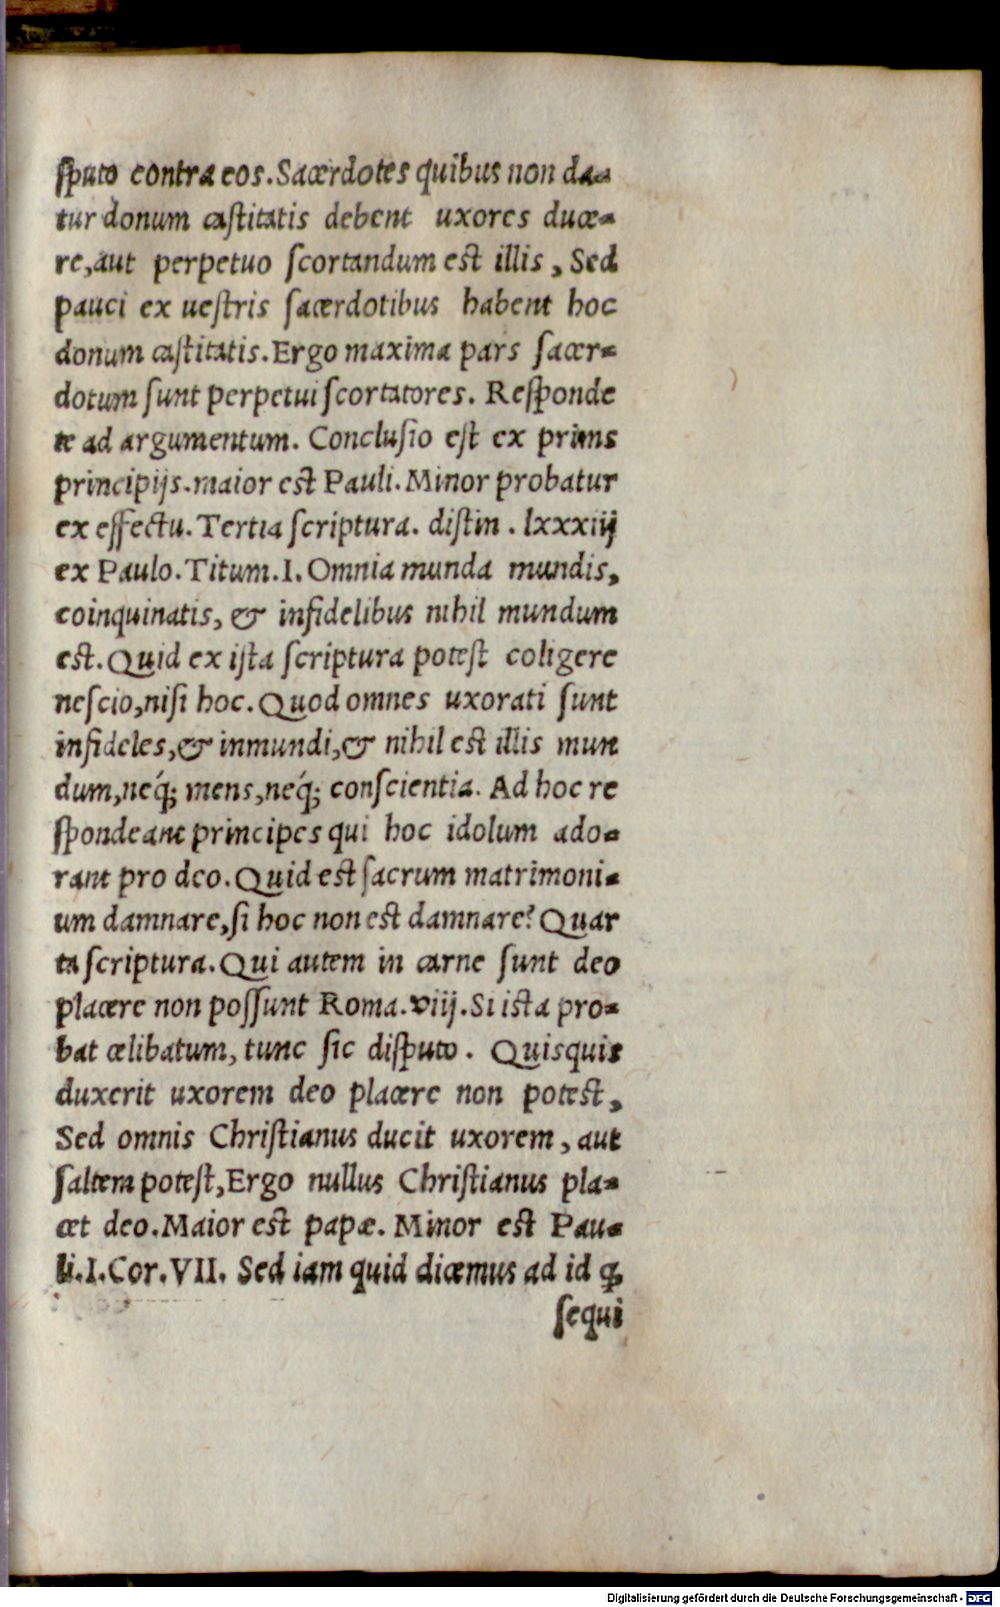 ſputo contra eos. Sacerdotes quibus non da-
tur donum caſtitatis debent uxores duce-
re, aut perpetuo ſcortandum est illis, Sed
pauci ex ueſtris ſacerdotibus habent hoc
donum caſtitatis. Ergo maxima pars ſacer-
dotum ſunt perpetui ſcortatores. Reſponde
te ad argumentum. Concluſio eſt ex primis
principijs. maior est Pauli. Minor probatur
ex effectu. Tertia ſcriptura. diſtin. lxxxiij
ex Paulo. Titum. I. Omnia munda mundis,
coinquinatis, & infidelibus nihil mundum
est. Quid ex iſta ſcriptura poteſt coligere
neſcio, niſi hoc. Quod omnes uxorati ſunt
infideles, & inmundi, & nihil est illis mun
dum, neq́; mens, neq́; conſcientia. Ad hoc re
ſpondeant principes qui hoc idolum ado-
rant pro deo. Quid est ſacrum matrimoni-
um damnare, ſi hoc non est damnare? Quar
ta ſcriptura. Qui autem in carne ſunt deo
placere non poſſunt Roma. viij. Si ista pro-
bat cœlibatum, tunc ſic diſputo. Quisquis
duxerit uxorem deo placere non potest,
Sed omnis Chriſtianus ducit uxorem, aut
ſaltem poteſt, Ergo nullus Chriſtianus pla-
cet deo. Maior est papæ. Minor est Pau-
li. I. Cor. VII. Sed iam quid dicemus ad id ꝙ
ſequi
Digitalisierung gefördert durch die Deutsche Forschungsgemeinschaft - DFG